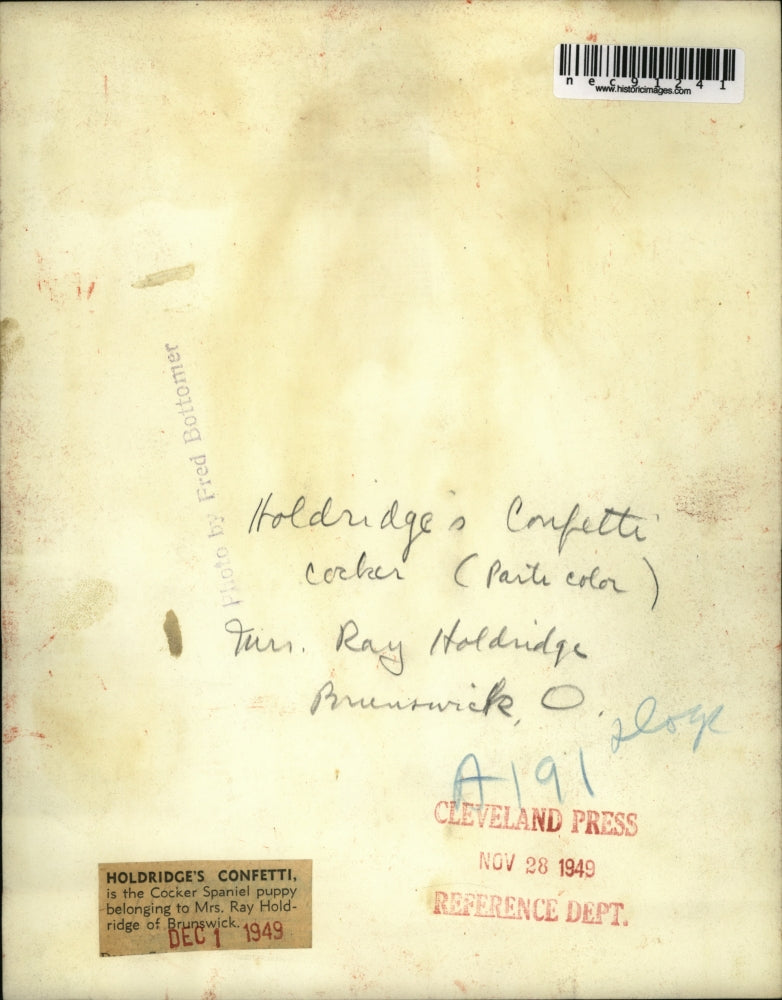 nec91241
www.historicimages.com
Photo by Fred Bottomer
Holdridge's Confetti
cocker (Parti color)
Mrs. Ray Holdridge
Brunswick, O.
A191
CLEVELAND PRESS
NOV 28 1949
REFERENCE DEPT.
HOLDRIDGE'S CONFETTI,
is the Cocker Spaniel puppy
belonging to Mrs. Ray Hold-
ridge of Brunswick.
DEC 1 1949